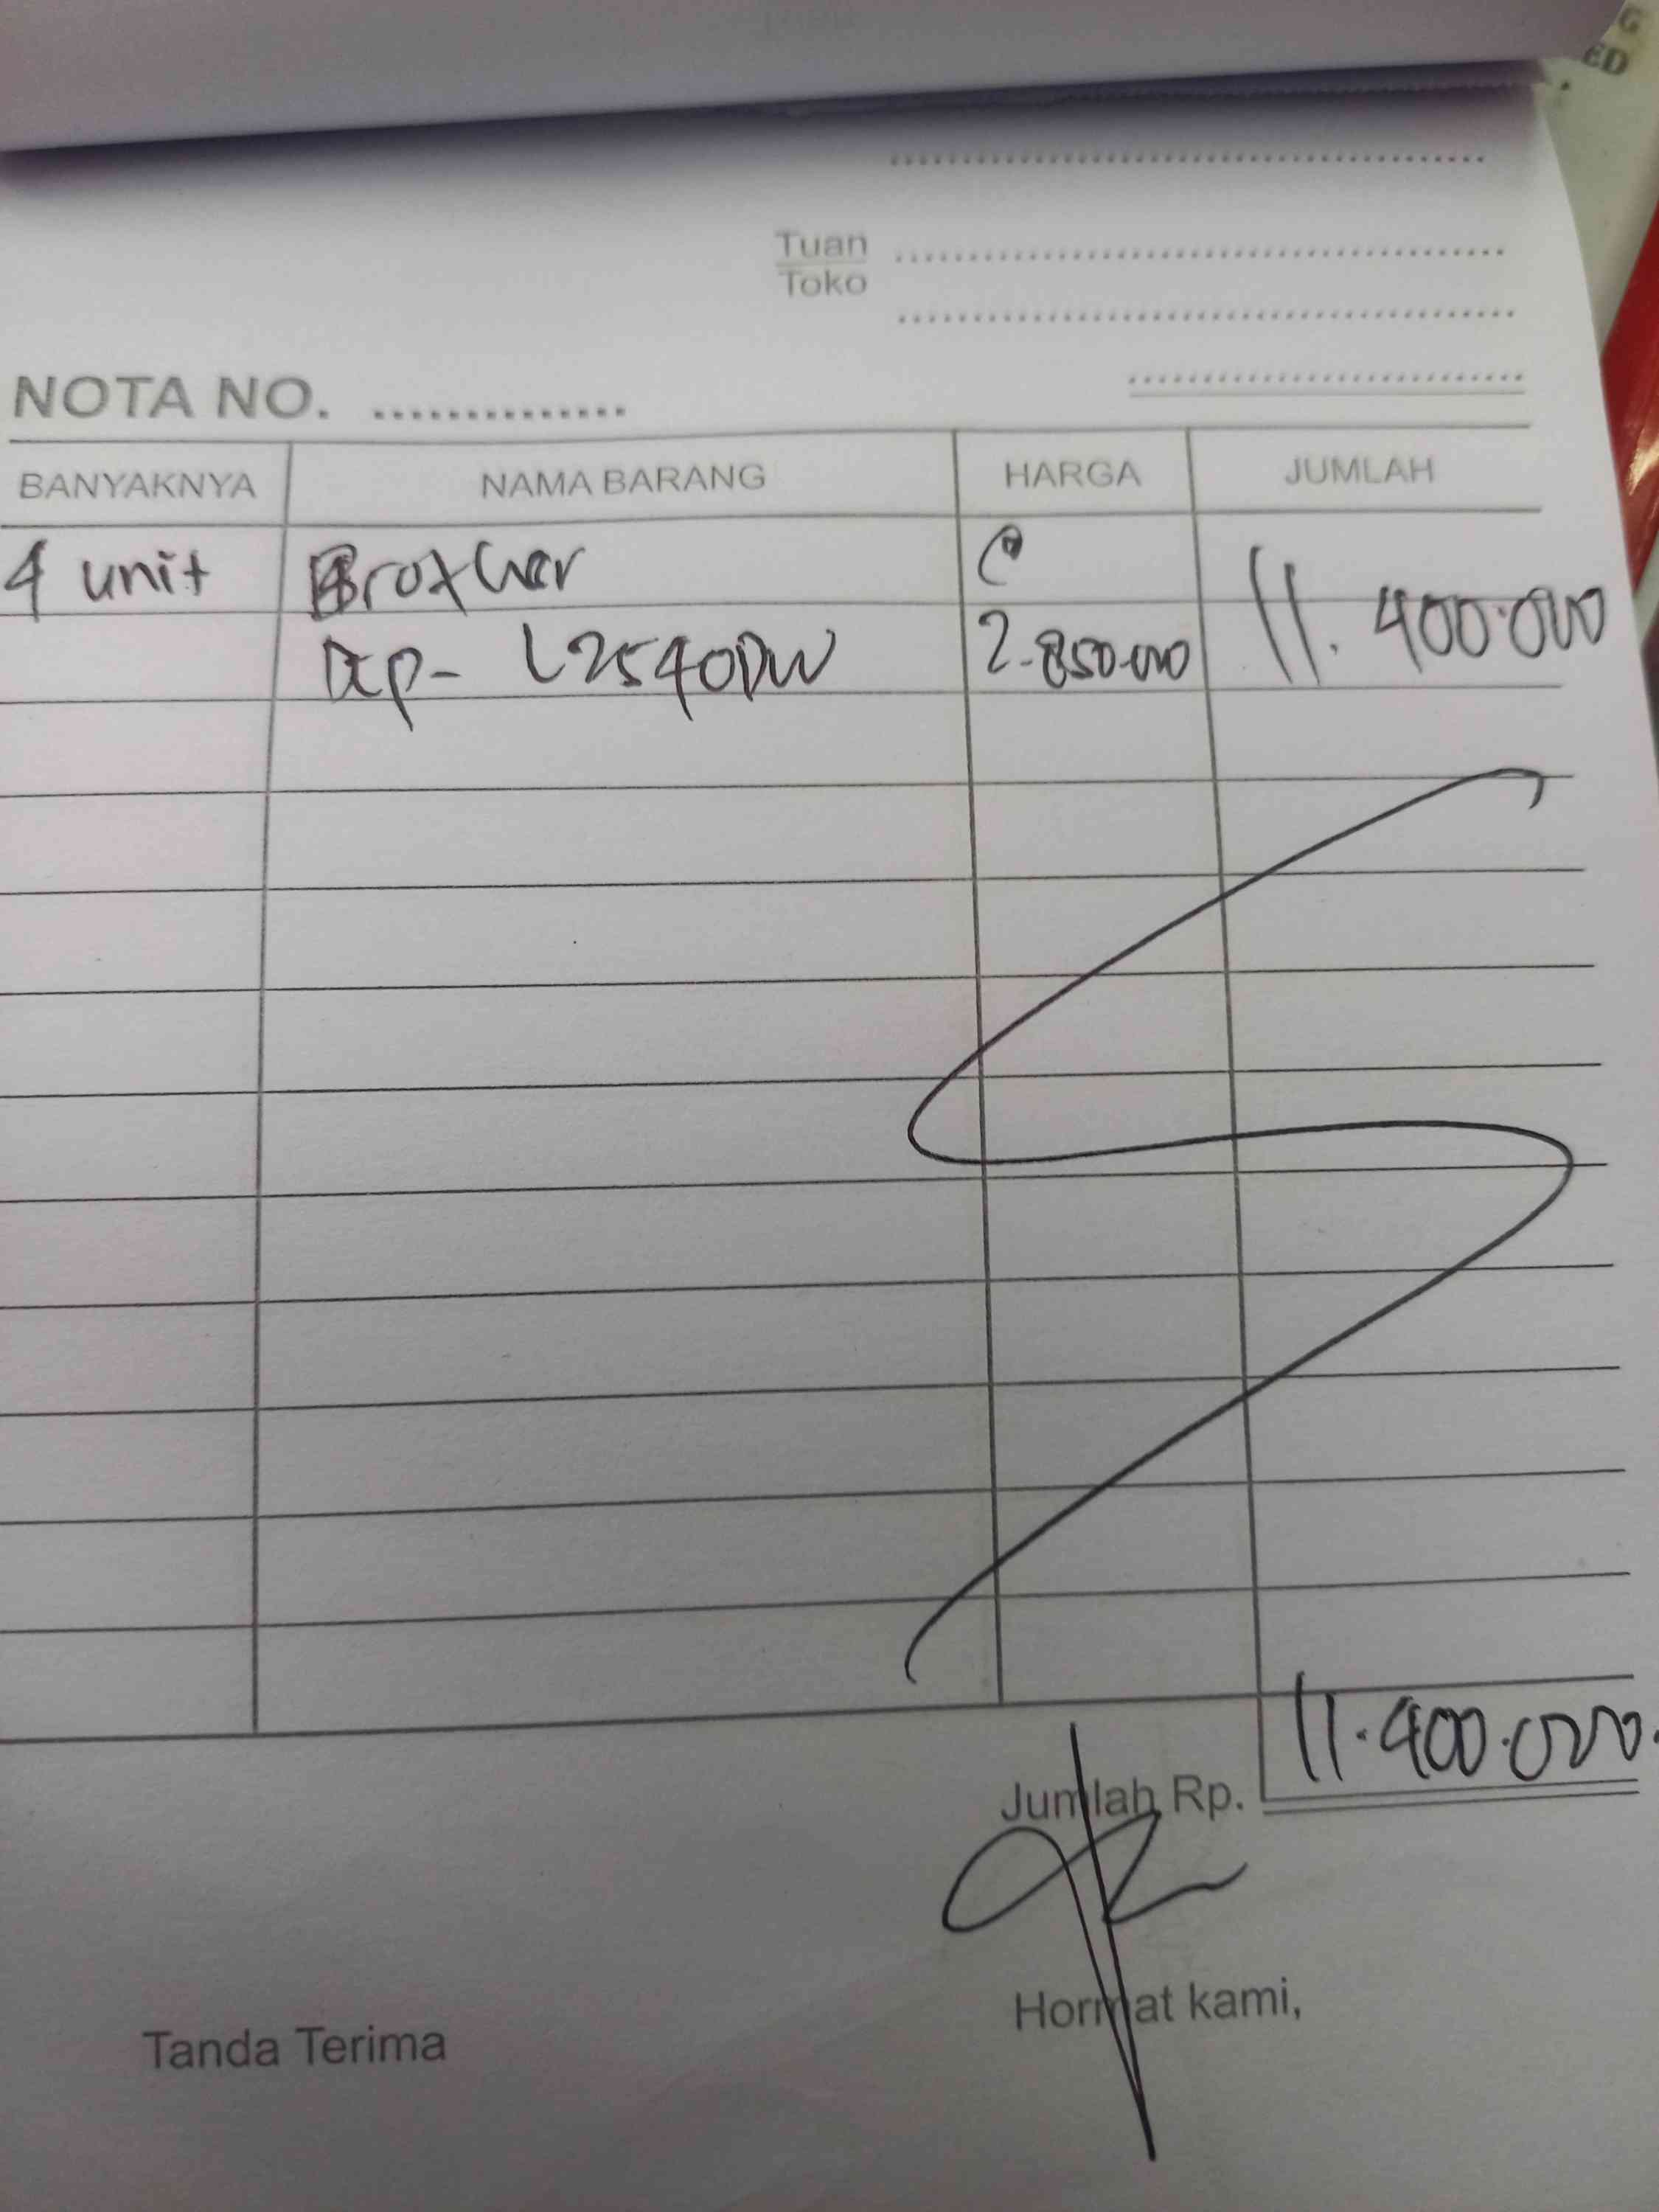 G
ED
Tuan
Toko
NOTA NO. ..............
BANYAKNYA NAMA BARANG HARGA JUMLAH
4 unit Brother @
Dcp- L2540DW 2.850.000 11.400.000
Jumlah Rp. 11.400.000.
Tanda Terima Hormat kami,